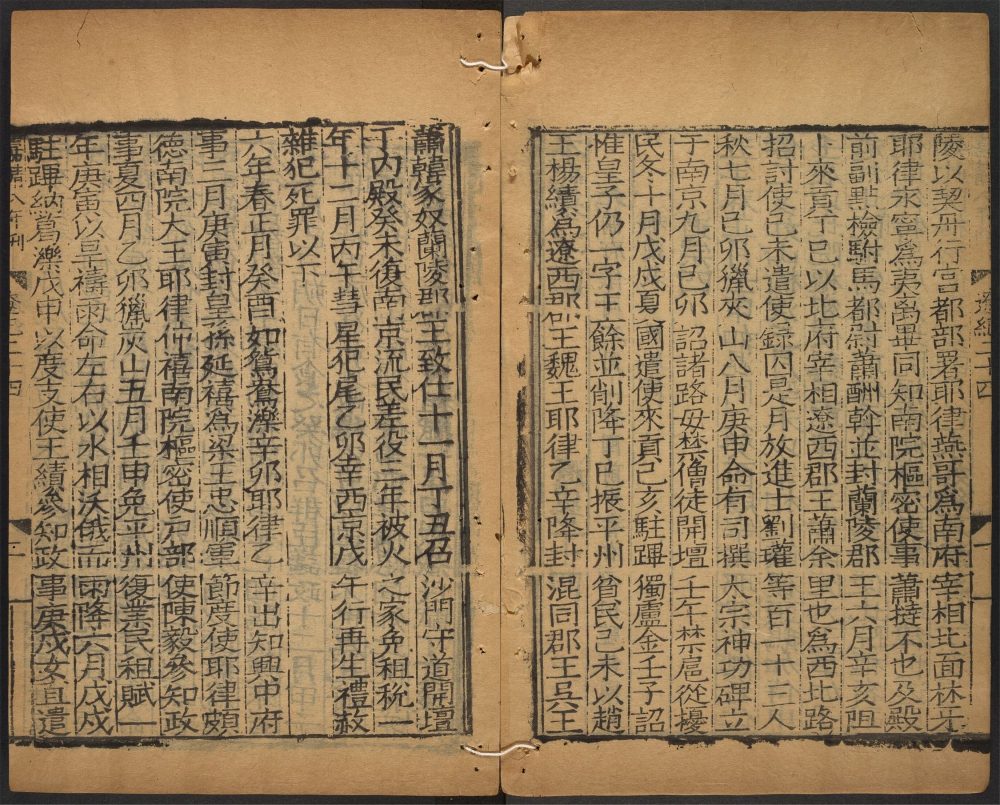 陵以契丹行宫都部署耶律燕哥爲南府宰相北面林牙
耶律永寧爲夷离畢同知南院樞密使事蕭撻不也及殿
前副點檢駙馬都尉蕭酬斡並封蘭陵郡王六月辛亥阻
卜來貢丁巳以北府宰相遼西郡王蕭余里也爲西北路
招討使己未遣使録囚是月放進士劉瓘等百一十三人
秋七月己卯獵夾山八月庚申命有司撰太宗神功碑立
于南京九月己卯詔諸路毋禁僧徒開壇壬午禁扈從擾
民冬十月戊戌夏國遣使來貢己亥駐蹕獨盧金壬子詔
惟皇子仍一字王餘並削降丁巳振平州貧民己未以趙
王楊績爲遼西郡王魏王耶律乙辛降封混同郡王吳王
蕭韓家奴蘭陵郡王致仕十一月丁丑召沙門守道開壇
于内殿癸未復南京流民差役三年被火之家免租稅一
年十二月丙午彗星犯尾乙卯幸西京戊午行再生禮赦
雜犯死罪以下
六年春正月癸酉如鴛鴦濼辛卯耶律乙辛出知興中府
事三月庚寅封皇孫延禧爲梁王忠順軍節度使耶律頗
德南院大王耶律仲禧南院樞密使户部使陳毅參知政
事夏四月乙卯獵炭山五月壬申免平州復業民租賦一
年庚寅以旱禱雨命左右以水相沃俄而雨降六月戊戌
駐蹕納葛濼戊申以度支使王績參知政事庚戌女直遣